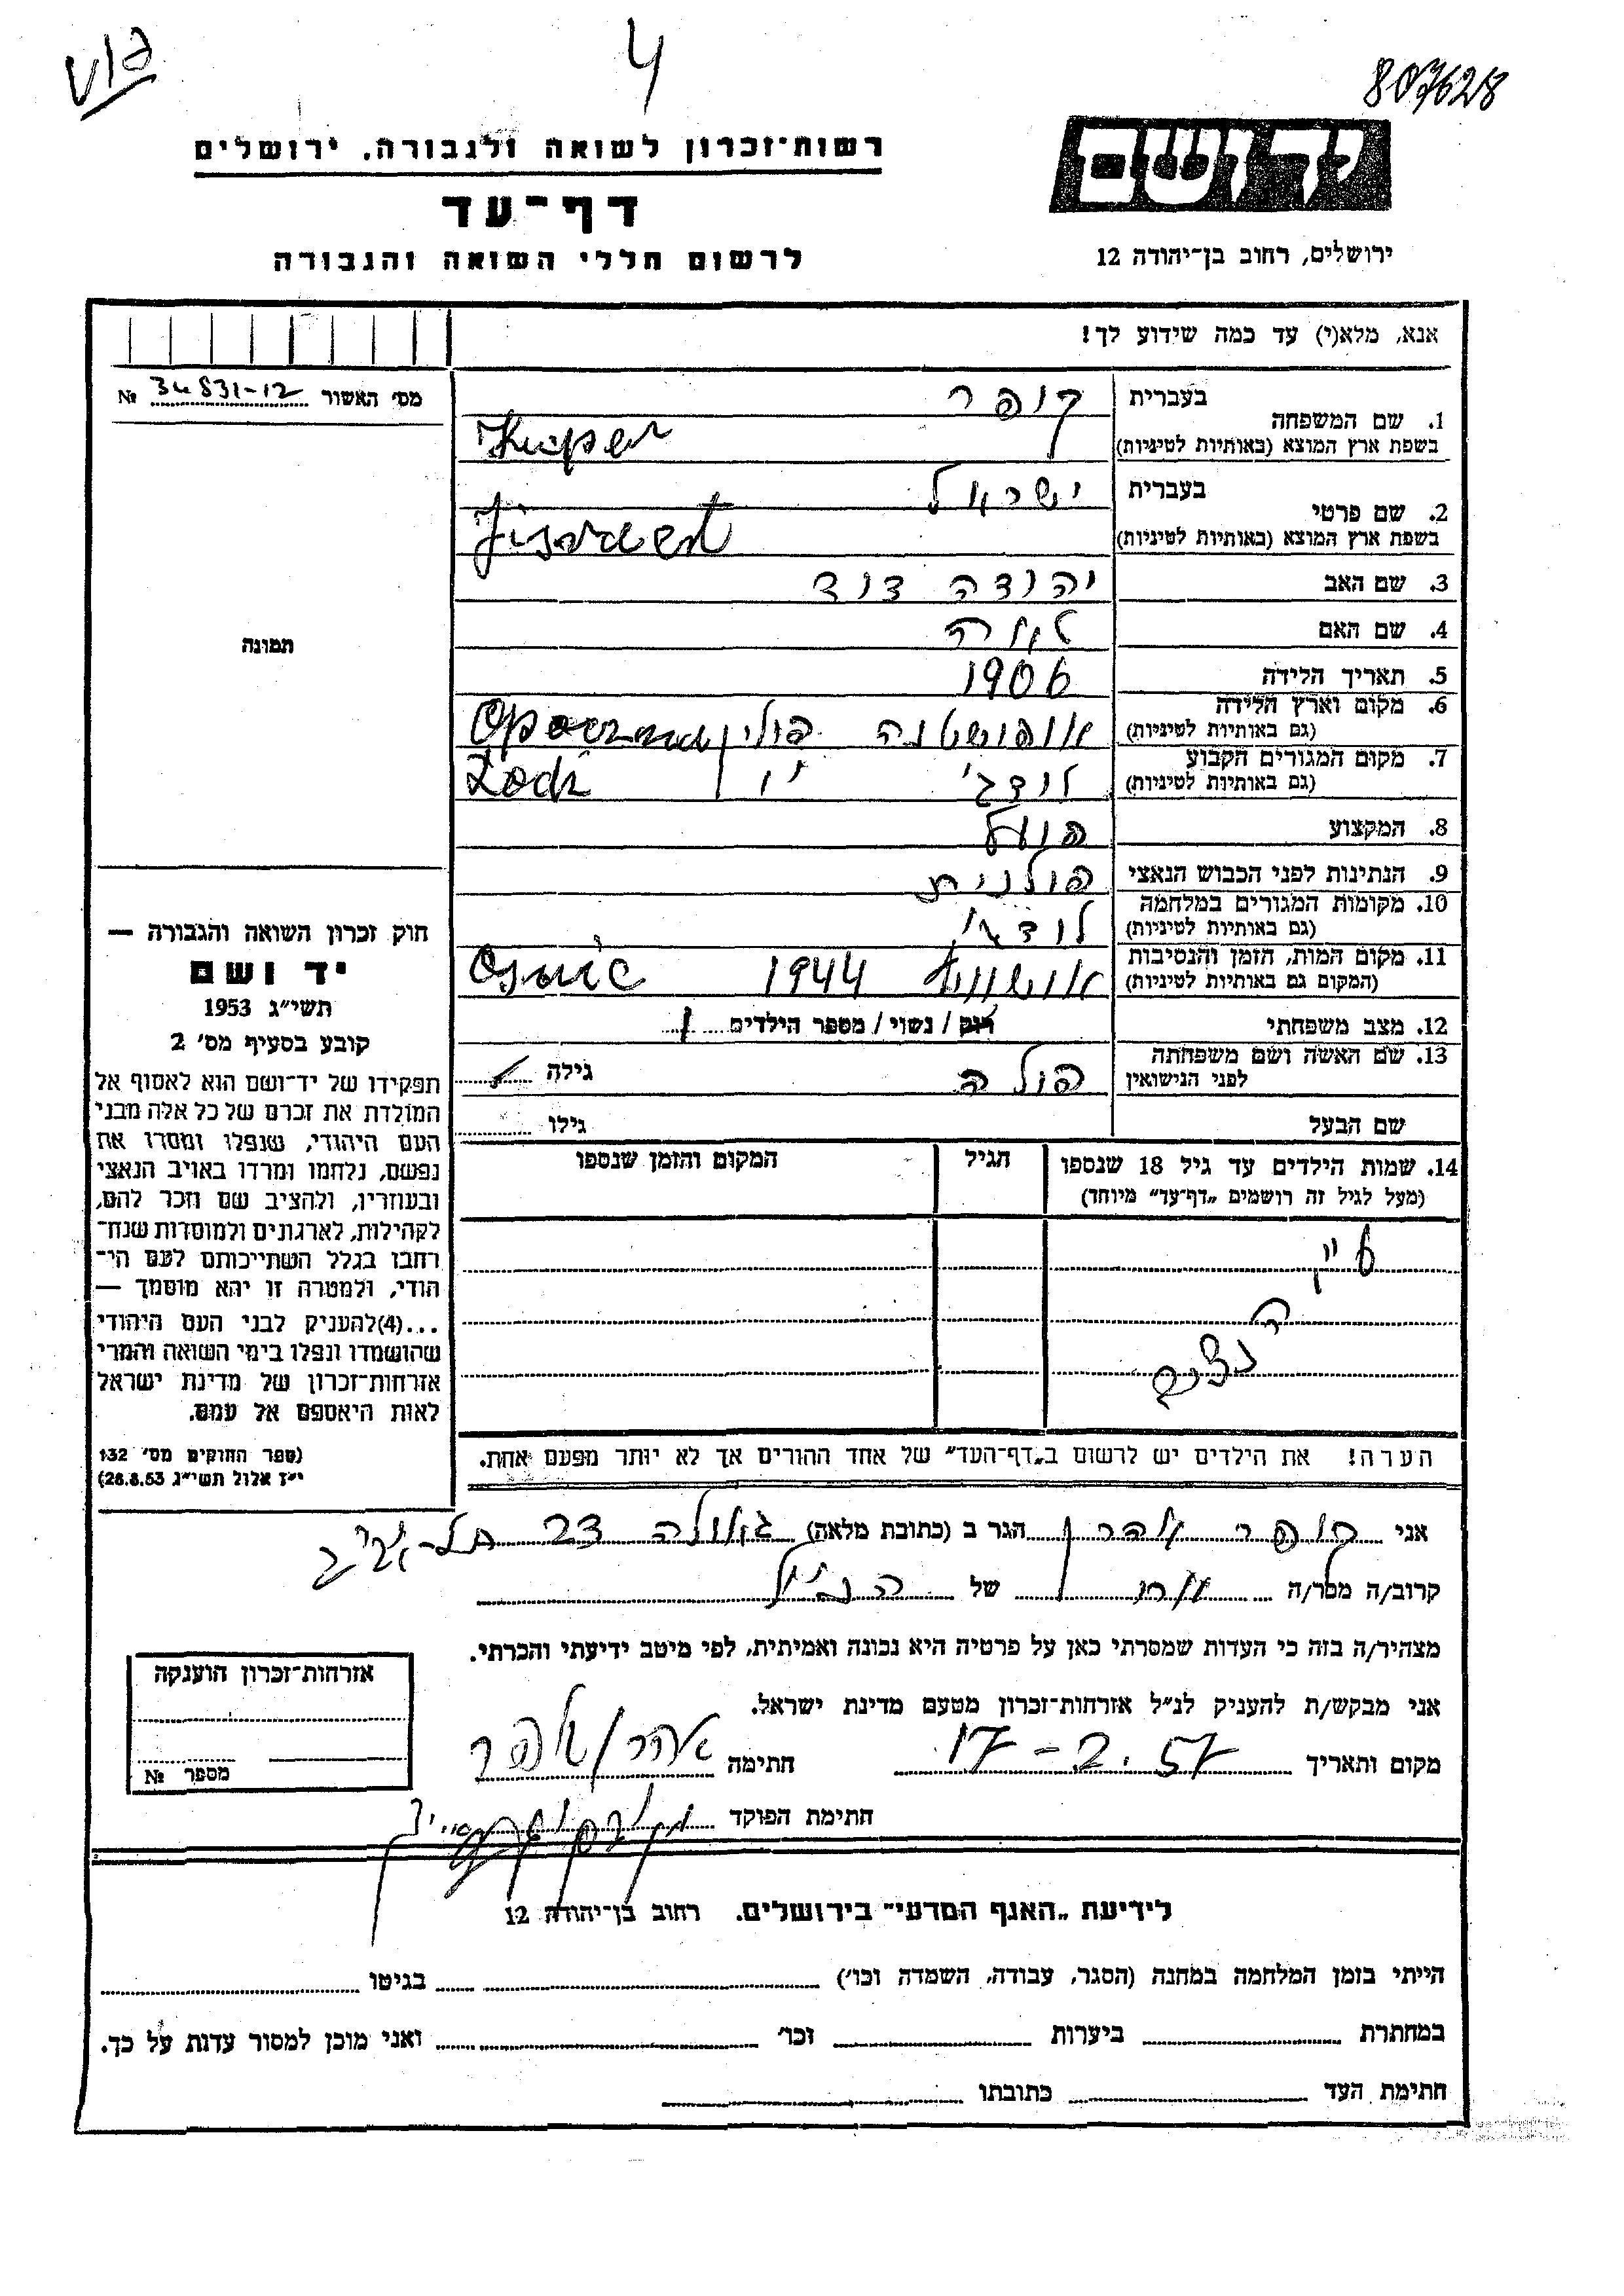 4
807628
יד ושם
רשות־זכרון לשואה ולגבורה. ירושלים
דף־עד
לרשום חללי השואה והגבורה
ירושלים, רחוב בן־יהודה 12
אנא, מלא(י) עד כמה שידוע לך!
מס׳ האשור 34831-12 №
1. שם המשפחה
בעברית קופר
בשפת ארץ המוצא (באותיות לטיניות) Kuper
2. שם פרטי
בעברית ישראל
בשפת ארץ המוצא (באותיות לטיניות)
3. שם האב יהודה דוד
4. שם האם לאה
5. תאריך הלידה 1906
6. מקום וארץ הלידה
(גם באותיות לטיניות) אופושטנה פולין
7. מקום המגורים הקבוע
(גם באותיות לטיניות) לודג׳ Lodz
8. המקצוע פועל
9. הנתינות לפני הכבוש הנאצי פולנית
10. מקומות המגורים במלחמה
(גם באותיות לטיניות) לודז׳
11. מקום המות, הזמן והנסיבות
(המקום גם באותיות לטיניות) 1944
12. מצב משפחתי רוק / נשוי / מספר הילדים 1
13. שם האשה ושם משפחתה
לפני הנישואין פולה גילה
שם הבעל גילו
14. שמות הילדים עד גיל 18 שנספו
(מעל לגיל זה רושמים „דף־עד״ מיוחד)
הגיל
המקום והזמן שנספו
הערה! את הילדים יש לרשום ב„דף־העד״ של אחד ההורים אך לא יותר מפעם אחת.
תמונה
חוק זכרון השואה והגבורה —
יד ושם
תשי״ג 1953
קובע בסעיף מס׳ 2
תפקידו של יד־ושם הוא לאסוף אל
המולדת את זכרם של כל אלה מבני
העם היהודי, שנפלו ומסרו את
נפשם, נלחמו ומרדו באויב הנאצי
ובעוזריו, ולהציב שם וזכר להם,
לקהילות, לארגונים ולמוסדות שנח־
רבו בגלל השתייכותם לעם הי־
הודי, ולמטרה זו יהא מוסמך —
...(4)להעניק לבני העם היהודי
שהושמדו ונפלו בימי השואה והמרי
אזרחות־זכרון של מדינת ישראל
לאות היאספם אל עמם.
(ספר החוקים מס׳ 132
י״ז אלול תשי״ג 28.8.53)
אני קופר אהרן הגר ב (כתובת מלאה) גאולה 23 תל־אביב
קרוב/ה מכר/ה אח של הנ״ל
מצהיר/ה בזה כי העדות שמסרתי כאן על פרטיה היא נכונה ואמיתית, לפי מיטב ידיעתי והכרתי.
אני מבקש/ת להעניק לנ״ל אזרחות־זכרון מטעם מדינת ישראל.
מקום ותאריך 17-2.57 חתימה אהרן קופר
חתימת הפוקד
אזרחות־זכרון הוענקה
מספר №
לידיעת „האגף המדעי״ בירושלים. רחוב בן־יהודה 12
הייתי בזמן המלחמה במחנה (הסגר, עבודה, השמדה וכו׳) בגיטו
במחתרת ביערות וכו׳ ואני מוכן למסור עדות על כך.
חתימת העד כתובתו